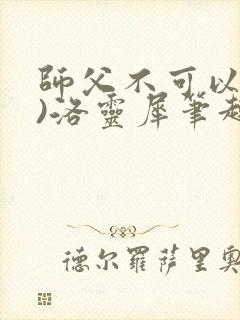 師父不可以
)洛靈犀筆趣
德尔羅萨里奧